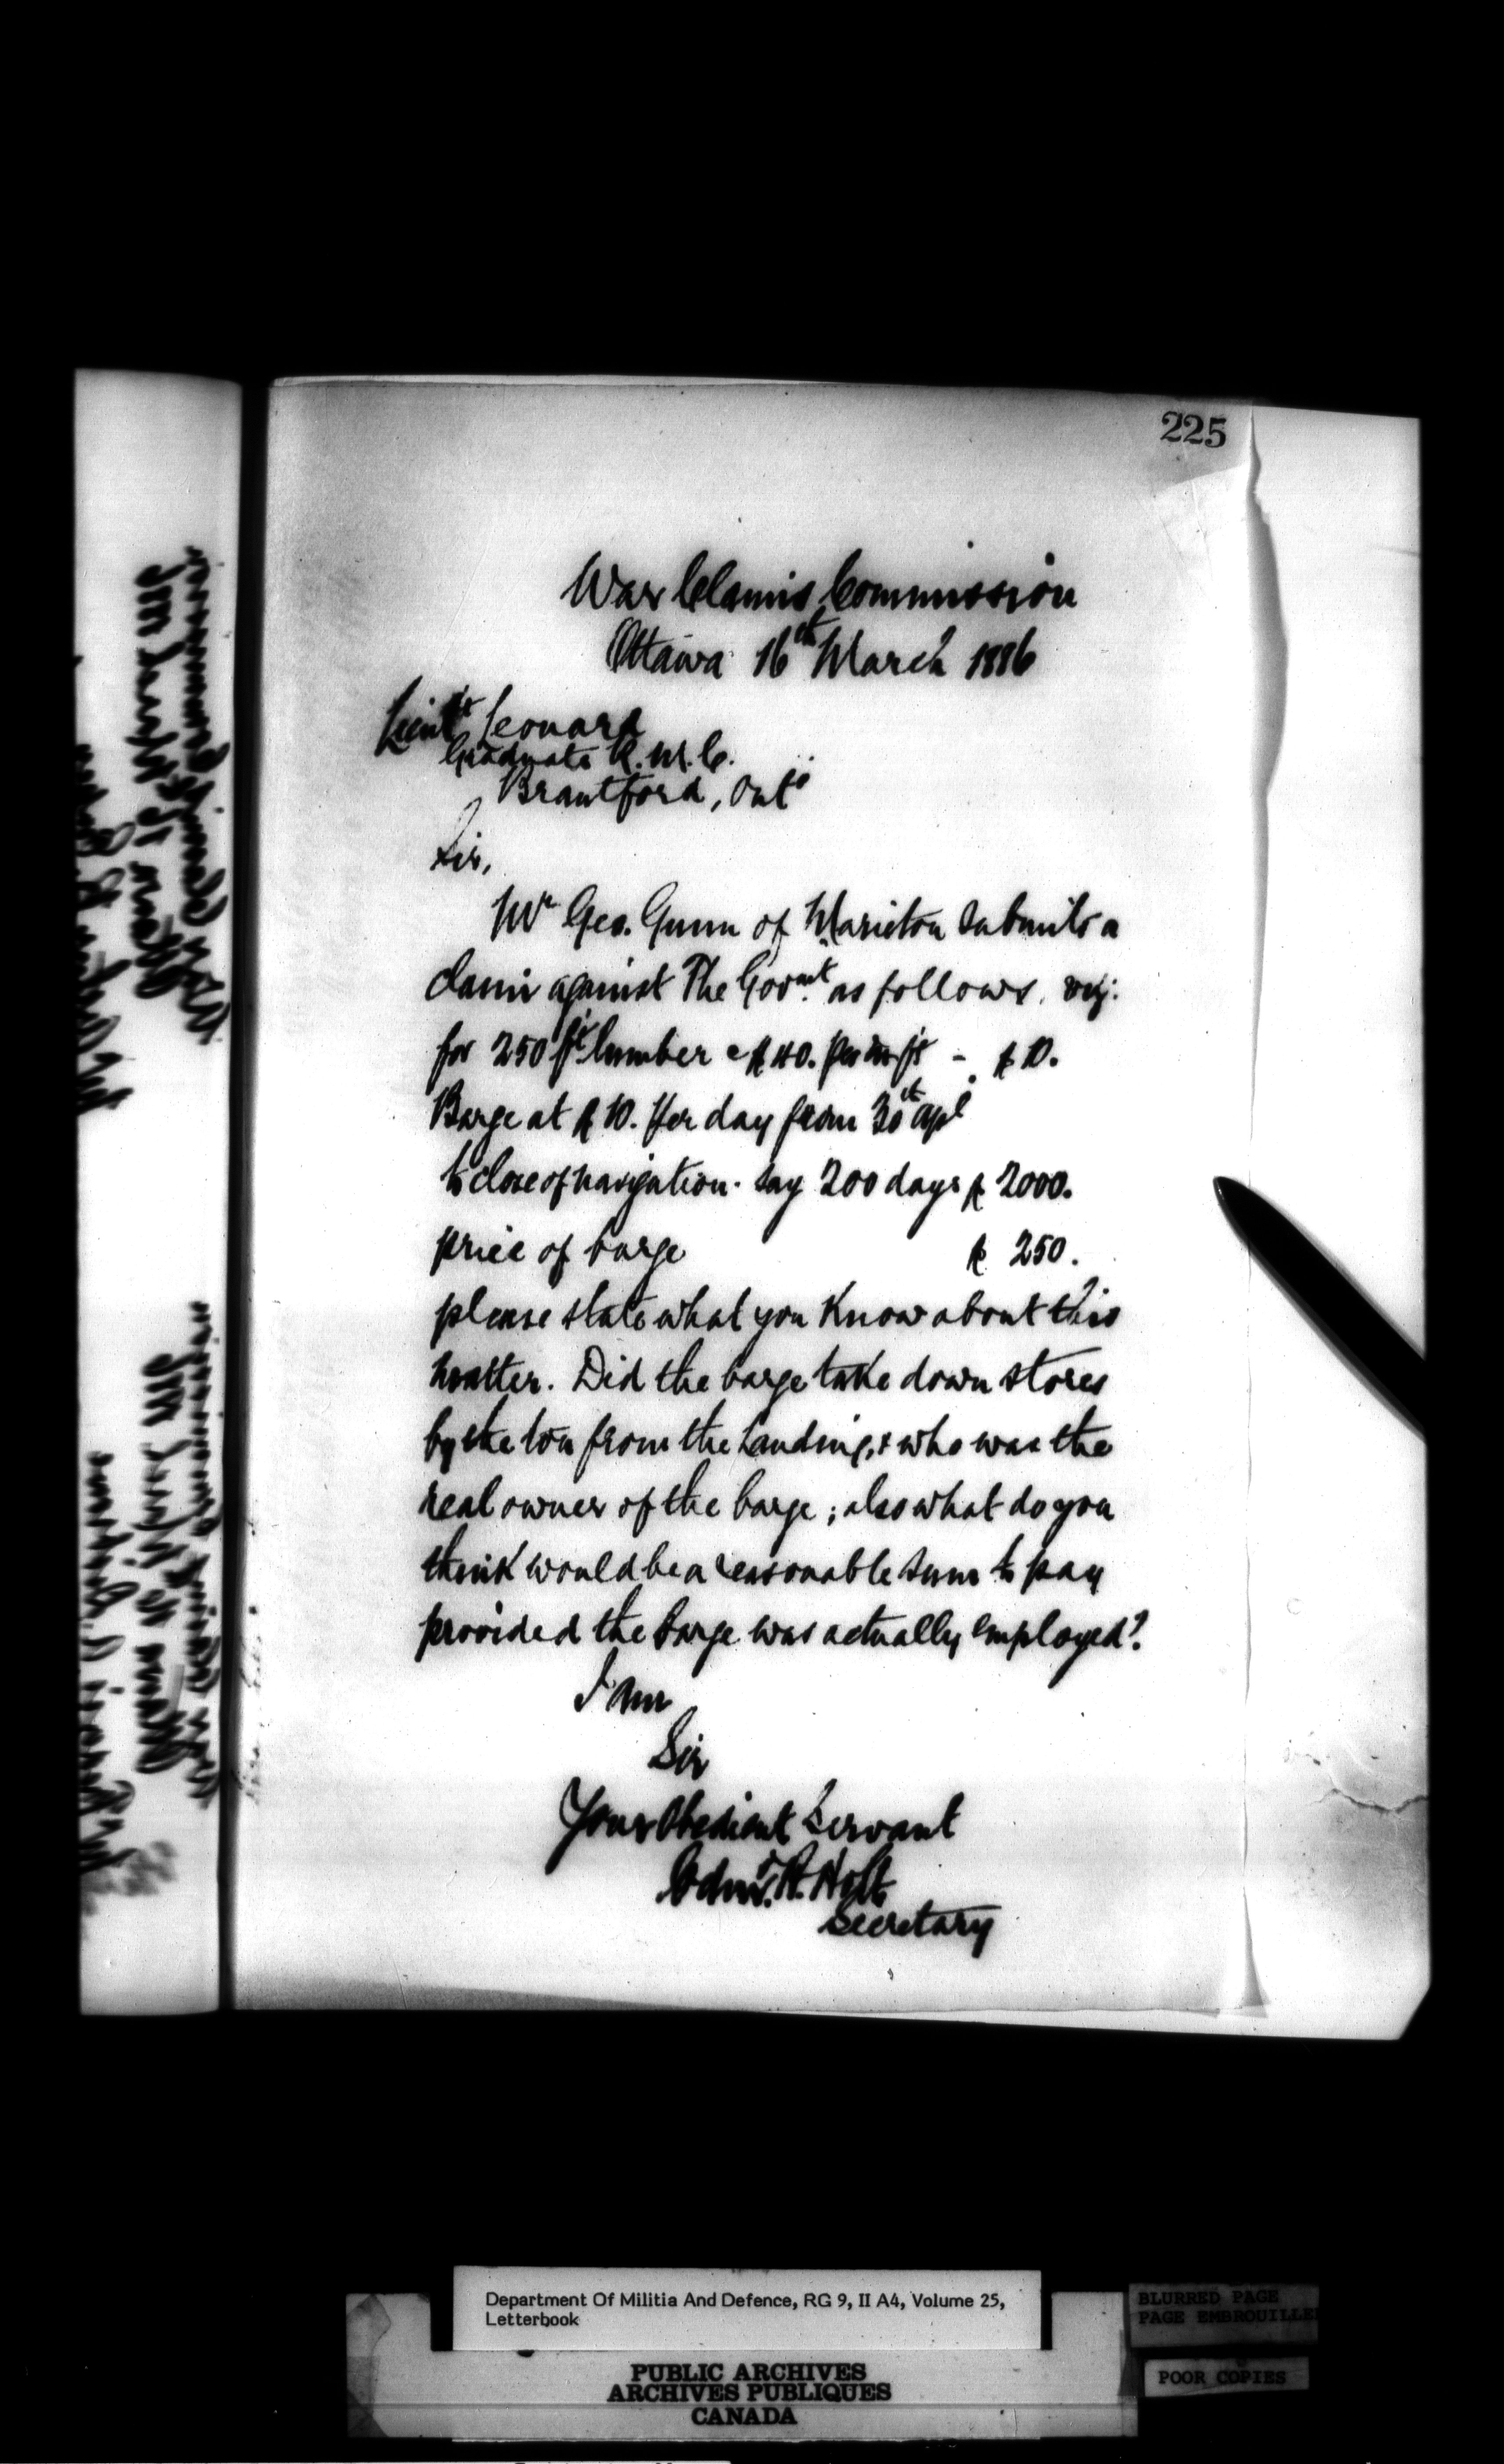 225
War Claims Commission
Ottawa 16th March 1886
Lieut Leonard
Graduate R.M.C.
Brantford, Onto
Sir,
Mr Geo. Gunn of submits a
claim against The Govmt. as follows. viz:
for 250 ft lumber @ $40. per m ft - $10.
Barge at $10. per day from 30th Apl
to close of navigation. say 200 days $2000.
price of barge $250.
please state what you Know about this
matter. Did the barge take down stores
by the ton from the Landing, & who was the
real owner of the barge; also what do you
think would be a reasonable sum to pay
provided the barge was actually employed?
I am
Sir
Your Obedient Servant
Holt
Secretary
Department Of Militia And Defence, RG 9, II A4, Volume 25,
Letterbook
BLURRED PAGE
PAGE EMBROUILLE
POOR COPIES
PUBLIC ARCHIVES
ARCHIVES PUBLIQUES
CANADA